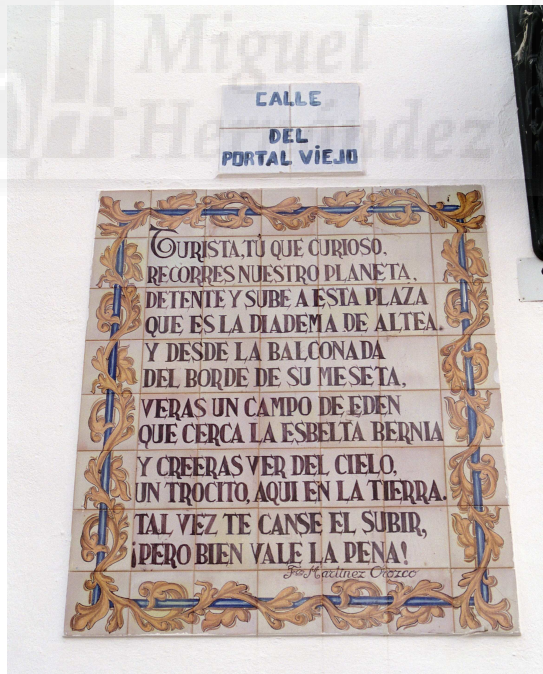 Miguel
Hernández
CALLE
DEL
PORTAL VIEJO
TURISTA, TU QUE CURIOSO,
RECORRES NUESTRO PLANETA,
DETENTE Y SUBE A ESTA PLAZA
QUE ES LA DIADEMA DE ALTEA.
Y DESDE LA BALCONADA
DEL BORDE DE SU MESETA,
VERAS UN CAMPO DE EDEN
QUE CERCA LA ESBELTA BERNIA
Y CREERAS VER DEL CIELO,
UN TROCITO, AQUI EN LA TIERRA.
TAL VEZ TE CANSE EL SUBIR,
¡PERO BIEN VALE LA PENA!
Fco Martinez Orozco